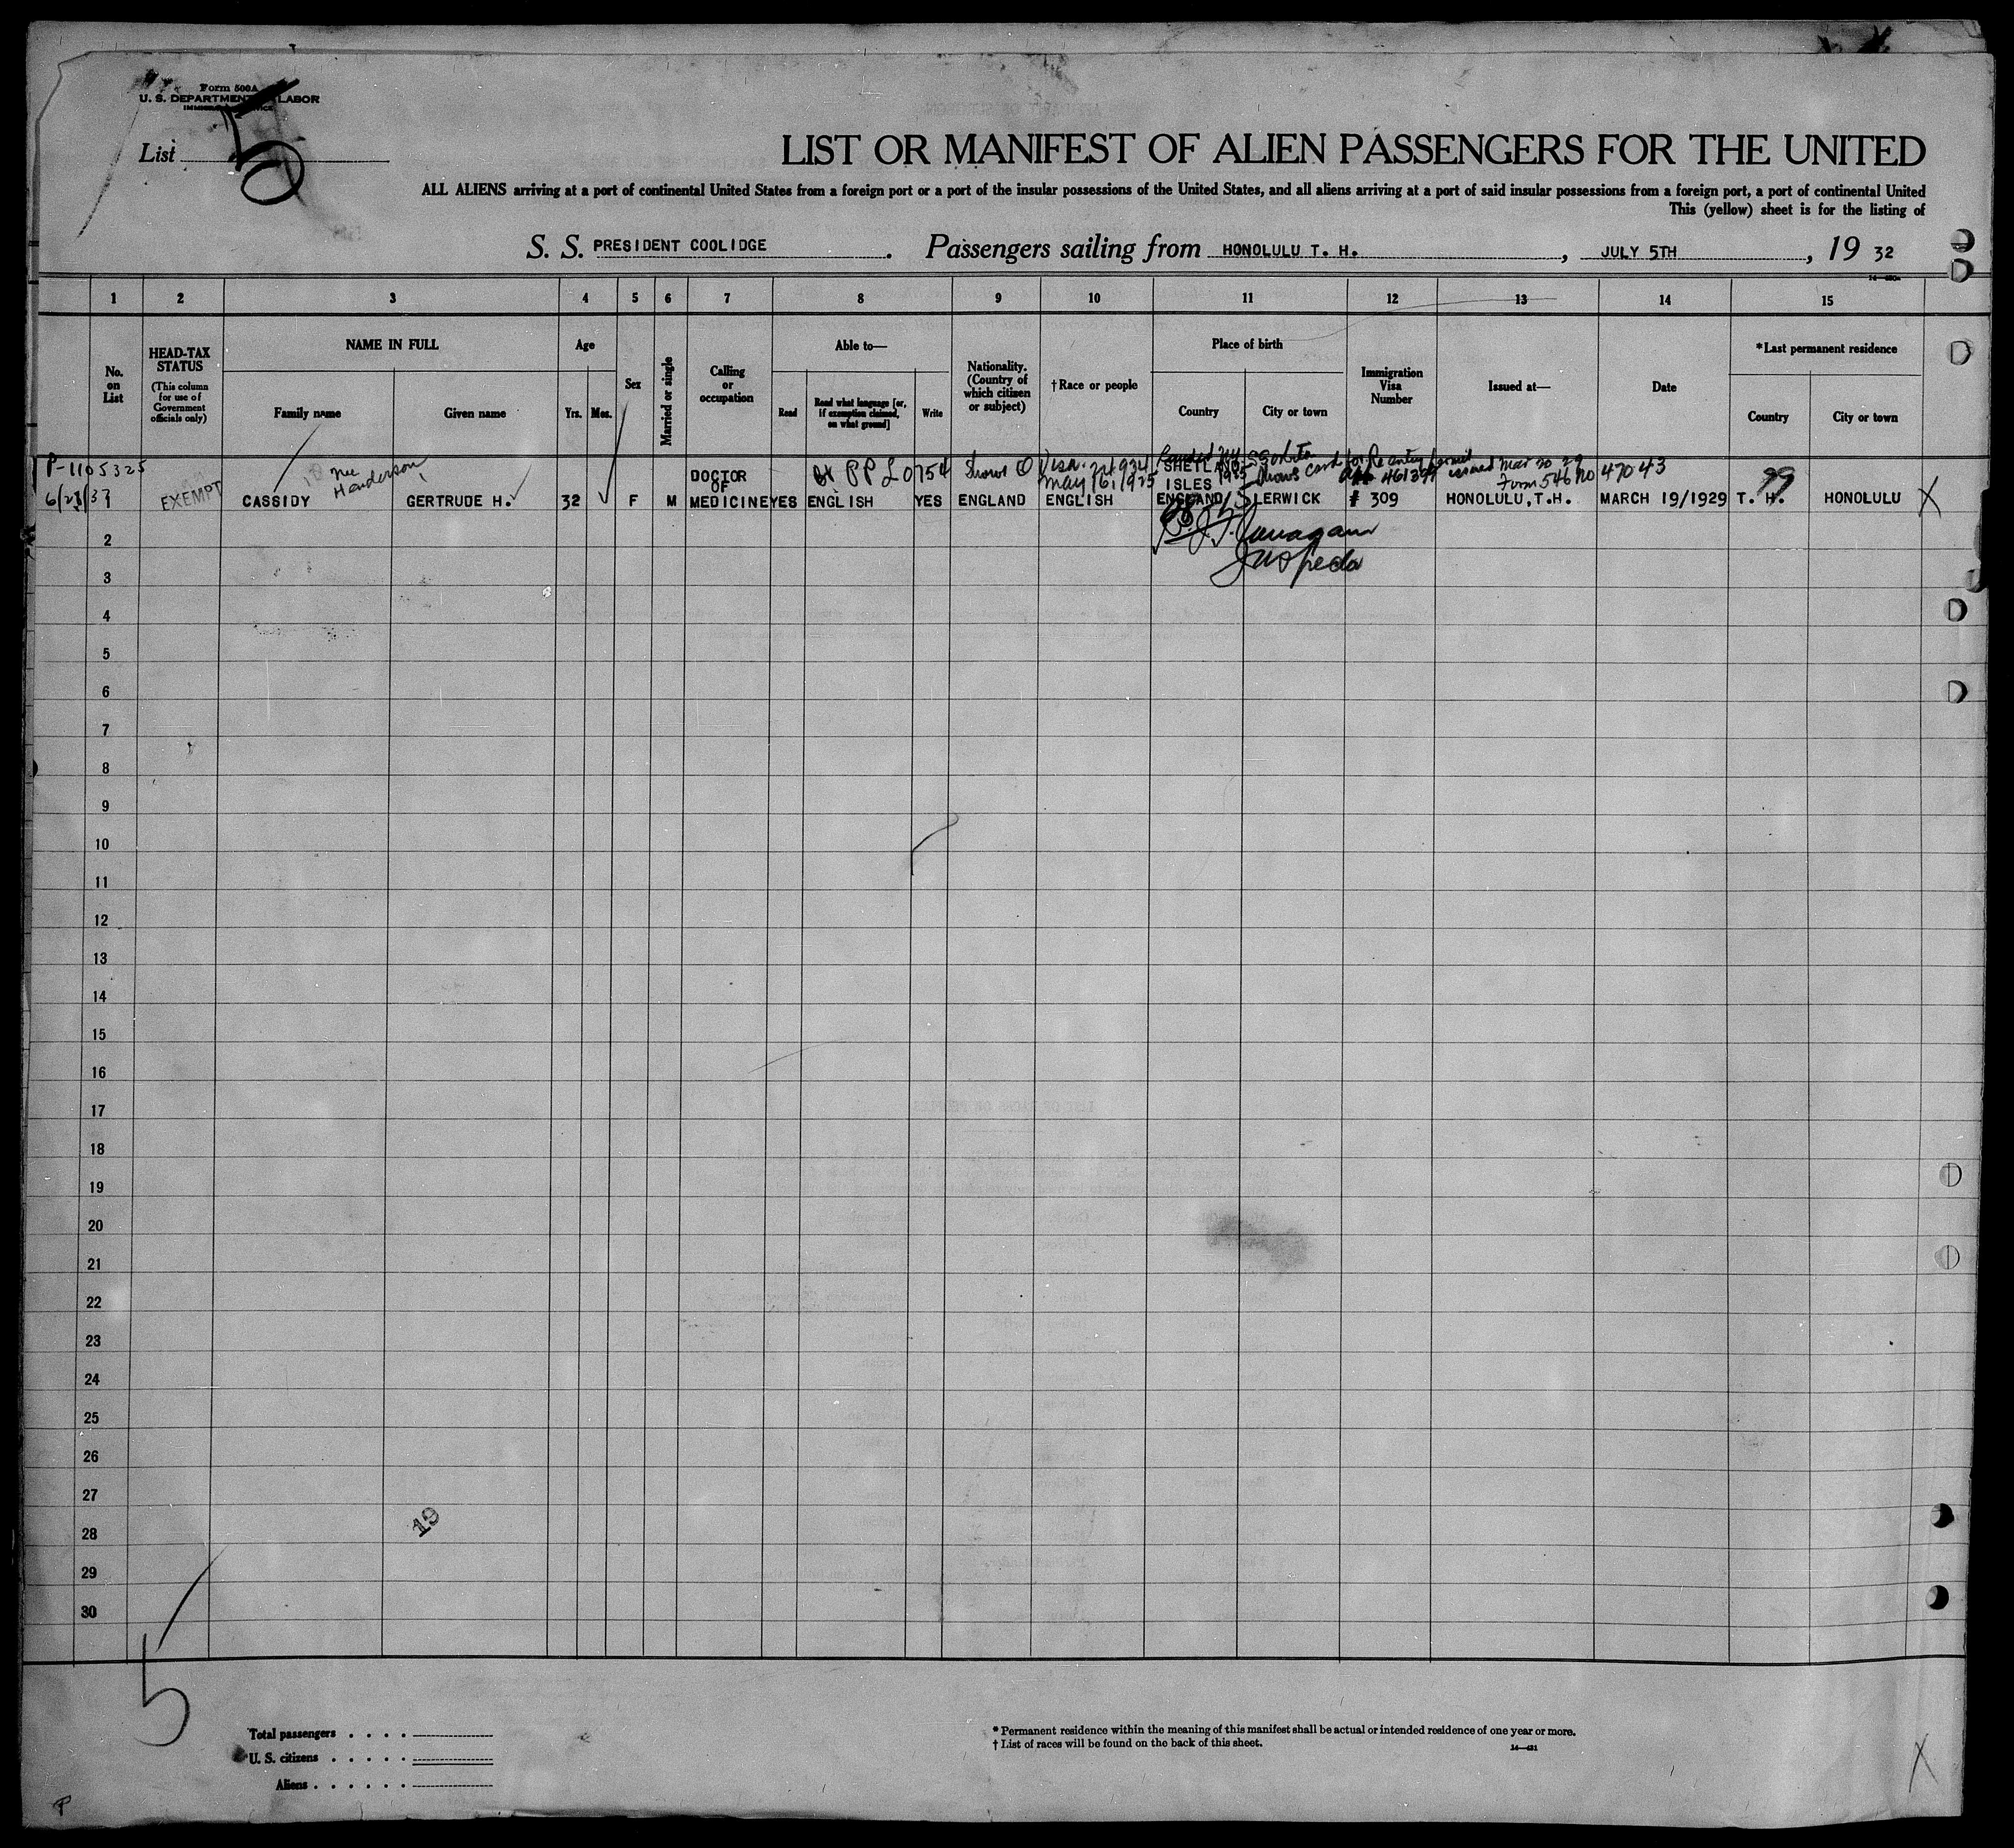 Form 500A
U. S. DEPARTMENT LABOR
List 5
LIST OR MANIFEST OF ALIEN PASSENGERS FOR THE UNITED
ALL ALIENS arriving at a port of continental United States from a foreign port or a port of the insular possessions of the United States, and all aliens arriving at a port of said insular possessions from a foreign port, a port of continental United
This (yellow) sheet is for the listing of
S. S. PRESIDENT COOLIDGE . Passengers sailing from HONOLULU T. H. , JULY 5TH , 19 32
1 2 3 4 5 6 7 8 9 10 11 12 13 14 15
No. on List
HEAD-TAX STATUS (This column for use of Government officials only)
NAME IN FULL
Family name
Given name
Age
Yrs. Mos.
Sex
Married or single
Calling or occupation
Able to—
Read
Read what language [or, if exemption claimed, on what ground]
Write
Nationality. (Country of which citizen or subject)
†Race or people
Place of birth
Country
City or town
Immigration Visa Number
Issued at—
Date
*Last permanent residence
Country
City or town
P-1105325
nee Henderson
PP L 0754
Shows Visa
May 16, 1925
SHETLAND ISLES
1925 Shows card for Reentry Permit
461399 issued Mar 20 29
Form 546 no 47043
6/28/37 EXEMPT CASSIDY GERTRUDE H. 32 F M DOCTOR OF MEDICINE YES ENGLISH YES ENGLAND ENGLISH ENGLAND LERWICK # 309 HONOLULU, T.H. MARCH 19/1929 T. H. HONOLULU X
99
2
3
4
5
6
7
8
9
10
11
12
13
14
15
16
17
18
19
20
21
22
23
24
25
26
27
28
29
30
19
5
Total passengers . . . .
U. S. citizens . . . . .
Aliens . . . . . .
* Permanent residence within the meaning of this manifest shall be actual or intended residence of one year or more.
† List of races will be found on the back of this sheet.
14—431
X
P